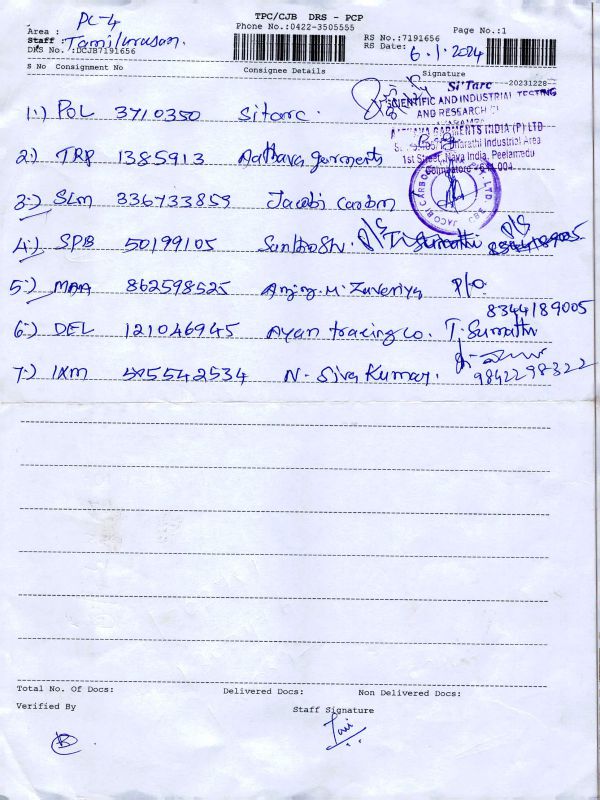 TPC/CJB DRS - PCP
PC-4
Phone No.:0422-3505555
Page No.:1
Area :
RS No.:7191656
Staff : Tamilarasan.
RS Date: 6/1/2024
DRS No.:DCJB7191656
S No Consignment No Consignee Details Signature --20231228--
Si'Tarc
SCIENTIFIC AND INDUSTRIAL TESTING
AND RESEARCH
1.) POL 3710350 Sitarc.
AATHAVA GARMENTS INDIA (P) LTD
Bharathi Industrial Area
2.) TRP 1385913 Aathava garments
1st Street, Nava India, Peelamedu
Coimbatore - 641 004.
JACOBI CARBO LTD. CBE
3.) SLM 336733859 Jacobi carbon
4.) SPB 50199105 P/S T. Sumathi P/S 8344189005
5.) MAA 862598525 P/O.
8344189005
6.) DEL 121046945 Ayan tracing co. T. Sumathi
7.) IXM 515542534 N. Siva Kumar.
9842298322
Total No. Of Docs: Delivered Docs: Non Delivered Docs:
Verified By Staff Signature